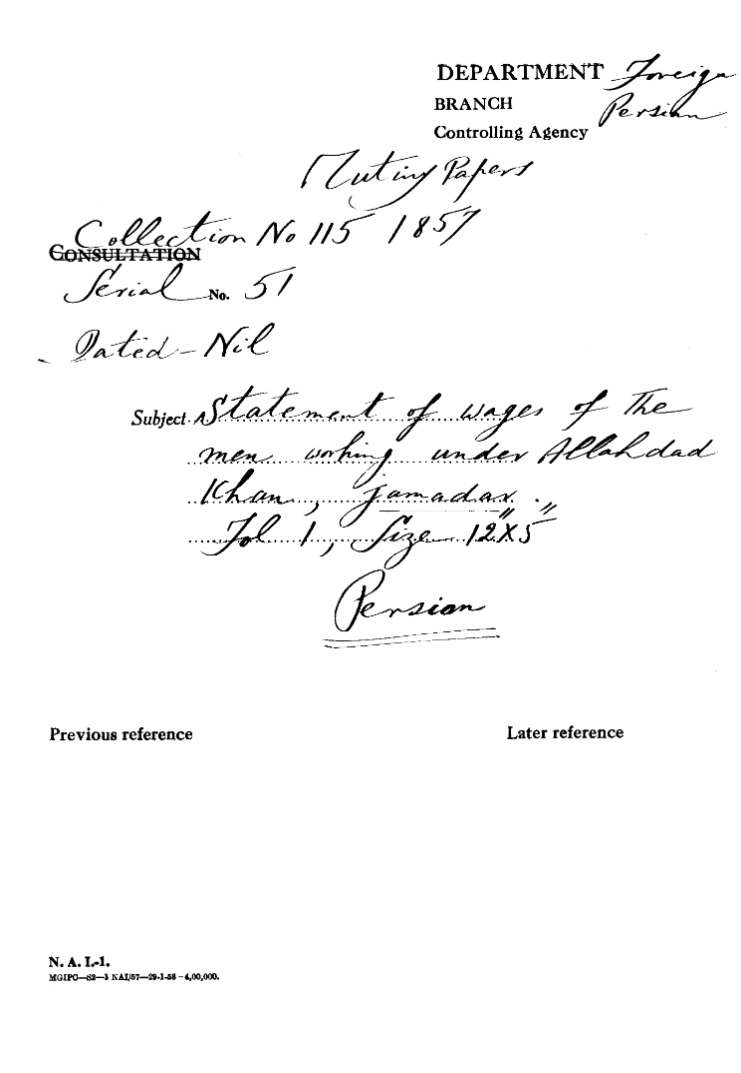 DEPARTMENT Foreign
BRANCH Persian
Controlling Agency
Mutiny Papers
Collection No 115 1857
CONSULTATION
Serial No. 51
Dated - Nil
Subject Statement of wages of The
men working under Allahdad
Khan, Jamadar.
Fol 1, Size 12"X5"
Persian
Previous reference
Later reference
N. A. I.-1.
MGIPC—S2—1 NAI/57—29-1-58—4,00,000.